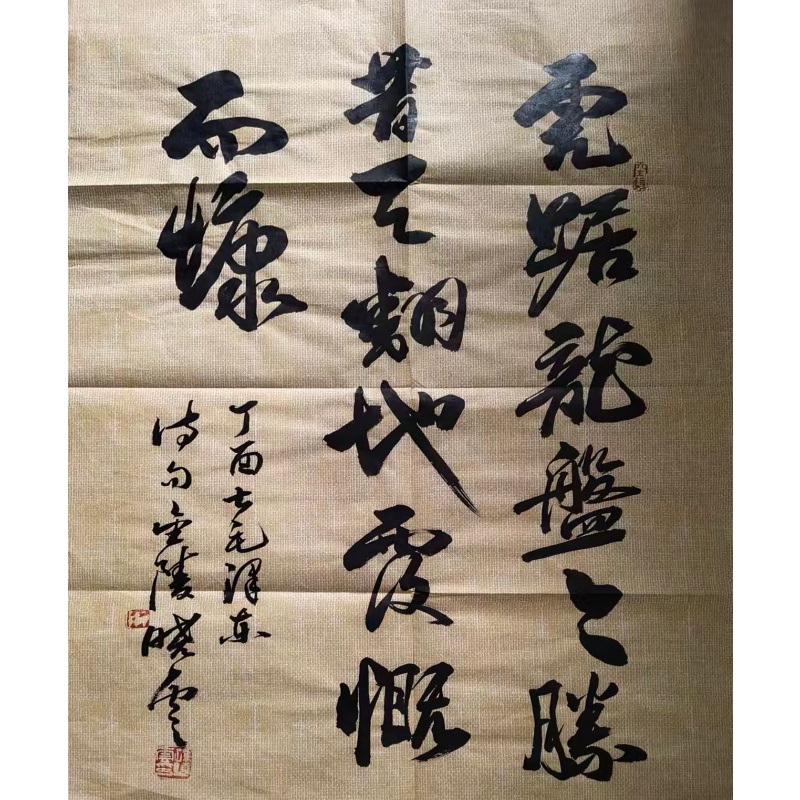 虎踞龍盤今勝
昔天翻地覆慨
而慷
丁酉书毛澤东
诗句金陵晓雲